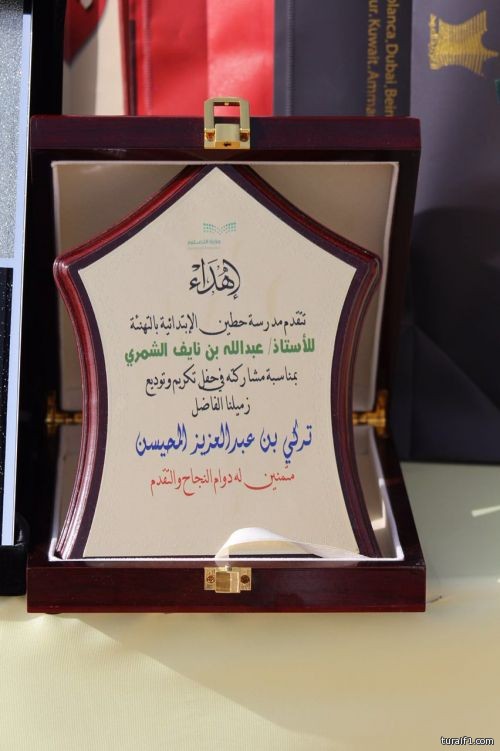 olanca, Dubai, Bein
ur, Kuwait, Amma
وزارة التعليم
إهداء
تتقدم مدرسة حطين الإبتدائية بالتهنئة
للأستاذ/ عبدالله بن نايف الشمري
بمناسبة مشاركته في حفل تكريم وتوديع
زميلنا الفاضل
تركي بن عبدالعزيز المحيسن
متمنين له دوام النجاح والتقدم
turaif1.com